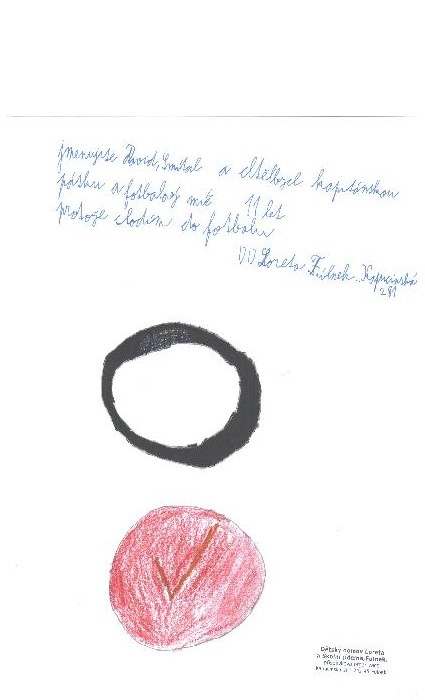 jmenujise David Smital a chtělbzel kapitánskou
pásku a fotbalový míč 11 let
protoze chodím do fotbalu
DD Loreta Fulnek Kapucínská
291
Dětský domov Loreta
a Školní jídelna, Fulnek,